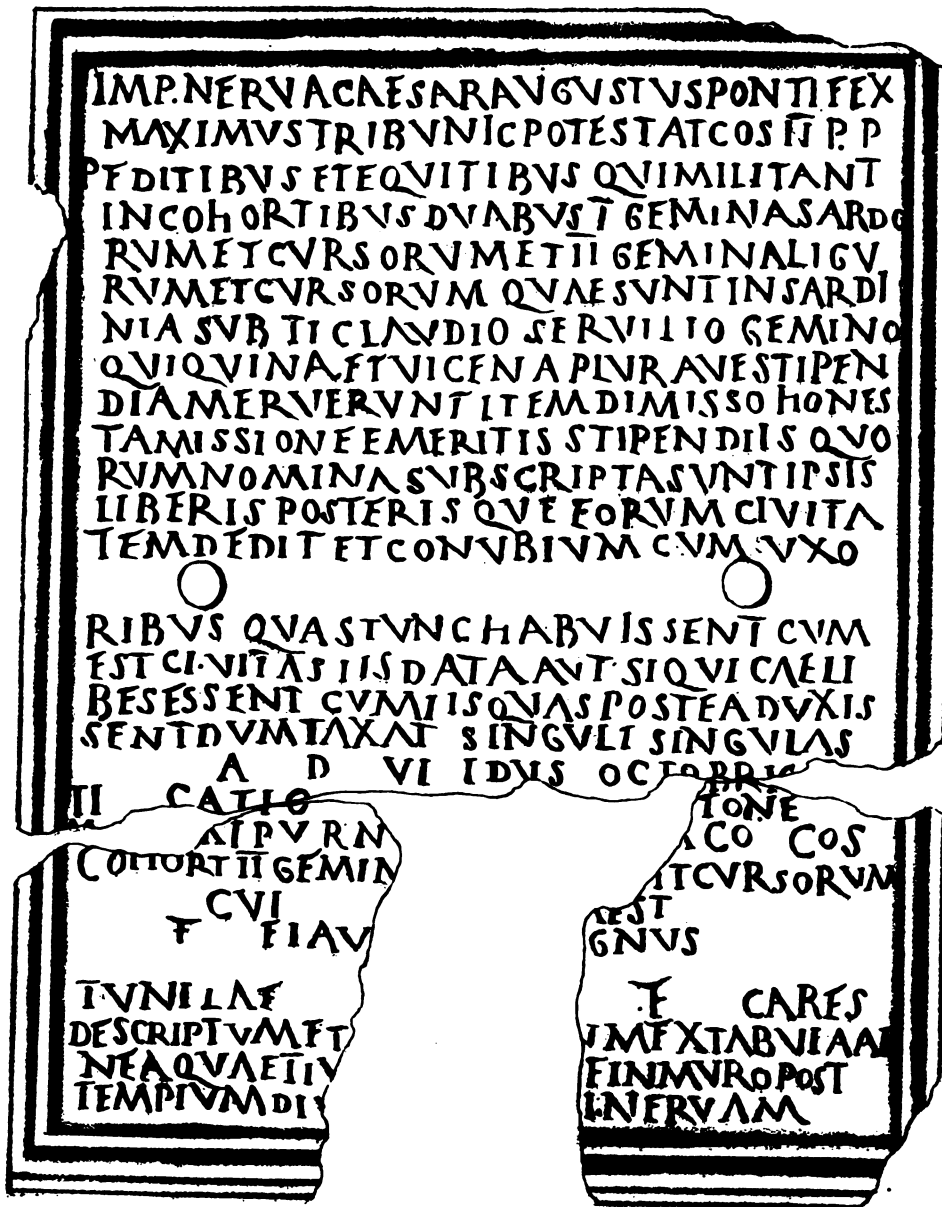 IMP.NERVACAESARAVGVSTVSPONTIFEX
MAXIMVSTRIBVNICPOTESTATCOS II P. P
PEDITIBVS ETEQVITIBVS QVIMILITANT
INCOHORTIBVS DVABVS I GEMINASARDO
RVMETCVRSORVMETII GEMINALIGV
RVMETCVRSORVM QVAESVNTINSARDI
NIA SVB TI CLAVDIO SERVILIO GEMINO
QVIQVINAETVICENA PLVRAVESTIPEN
DIAMERVERVNT ITEMDIMISSO HONES
TAMISSIONEEMERITIS STIPENDIIS QVO
RVMNOMINASVBSCRIPTASVNTIPSIS
LIBERIS POSTERISQVE EORVM CIVITA
TEMDEDIT ETCONVBIVM CVM VXO
RIBVS QVASTVNCHABVISSENT CVM
EST CIVITAS IISDATAAVT SIQVI CAELI
BESESSENT CVMIISQVASPOSTEADVXIS
SENTDVMTAXAT SINGVLI SINGVLAS
A D VI IDVS OCTOBRIS
TI CATIO TONE
M AIPVRN CO COS
COHORT II GEMIN ITCVRSORVM
CVI AEST
F FIAV GNVS
TVNILAE F CARES
DESCRIPTVMET VMEXTABVIAAE
NEAQVAETIV FINMVROPOST
TEMPIVMDIV INERVAM